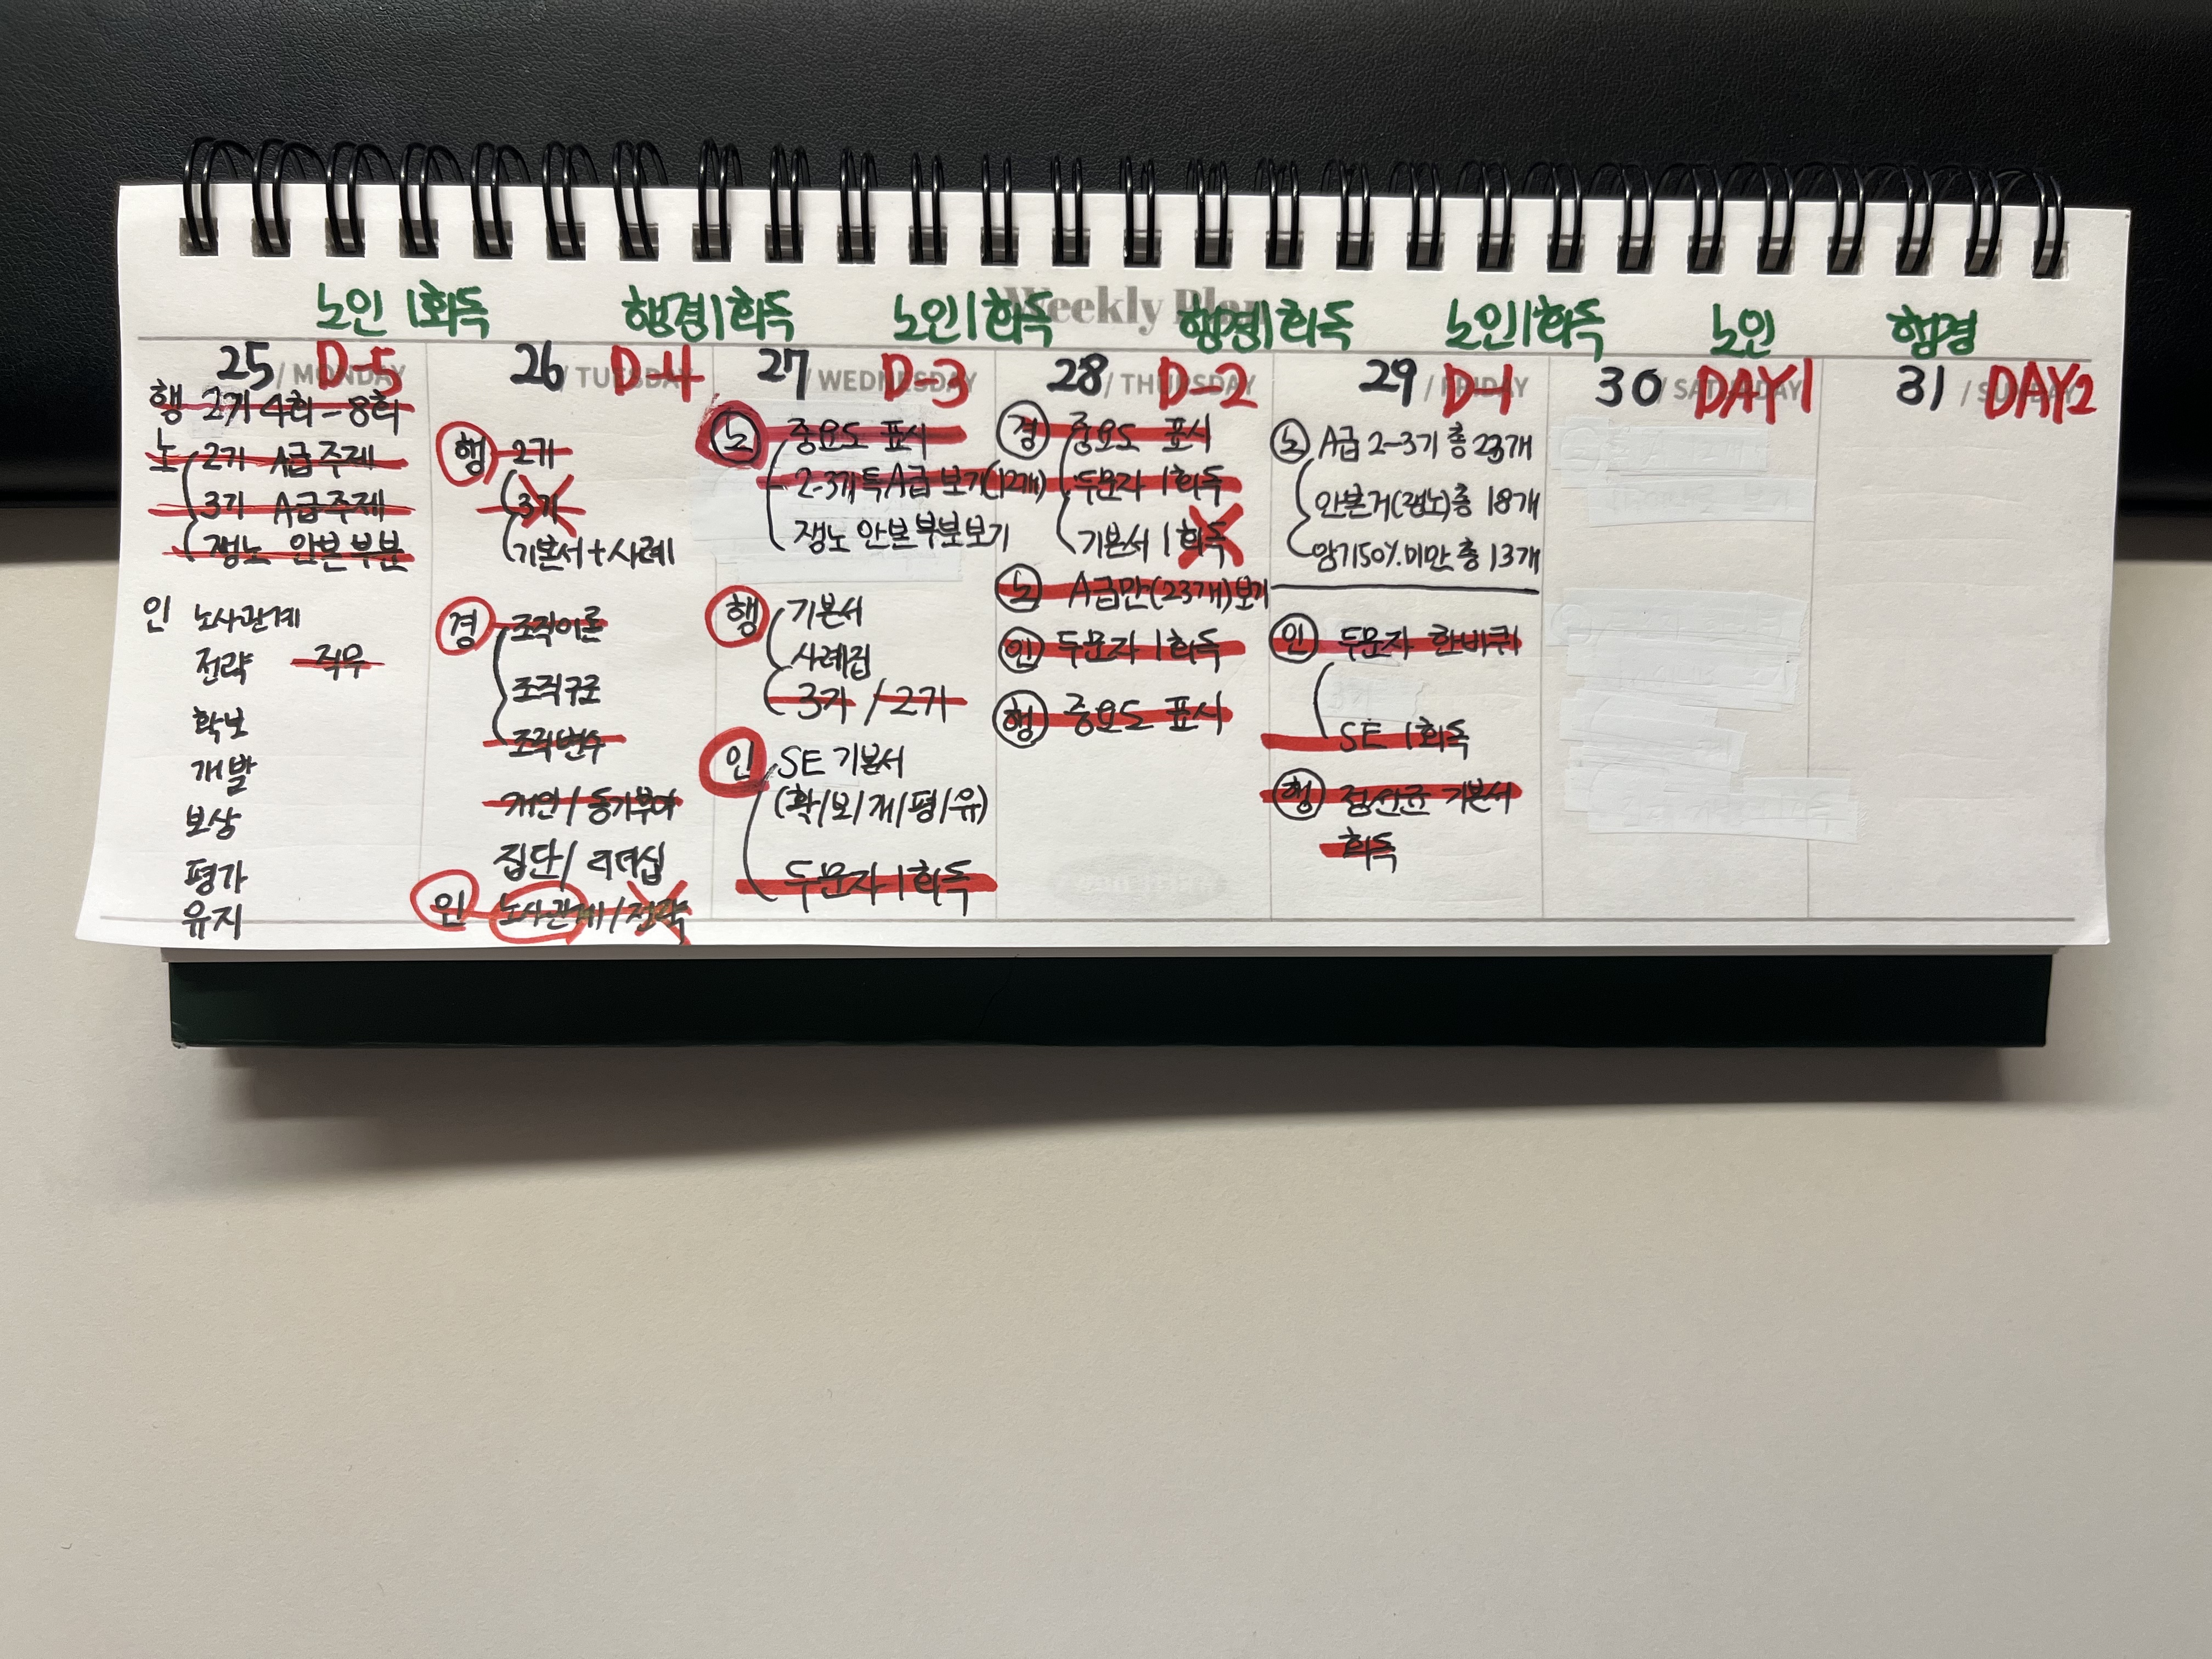 Weekly Plan
노인 1회독
행경 1회독
노인 1회독
행경 1회독
노인 1회독
노인
행경
25 / MONDAY D-5
행 2기 4회-8회
노 2기 A급 주제
3기 A급 주제
쟁노 안본 부분
인 노사관계
전략 직무
확보
개발
보상
평가
유지
26 / TUESDAY D-4
행 2기
3기
기본서+사례
경 조직이론
조직구조
조직변수
개인/동기부여
집단/리더십
인 노사관계/전략
27 / WEDNESDAY D-3
노 중요도 표시
2-3기 특A급 보기(12개)
쟁노 안본 부분 보기
행 기본서
사례집
3기 / 2기
인 SE 기본서
(확/보/개/평/유)
두문자 1회독
28 / THURSDAY D-2
경 중요도 표시
두문자 1회독
기본서 1회독
노 A급만(23개)보기
인 두문자 1회독
행 중요도 표시
29 / FRIDAY D-1
노 A급 2-3기 총 23개
안본거(쟁노)총 18개
암기50%미만 총 13개
인 두문자 한바퀴
SE 1회독
행 기본서
회독
30 / SATURDAY DAY1
31 / SUNDAY DAY2